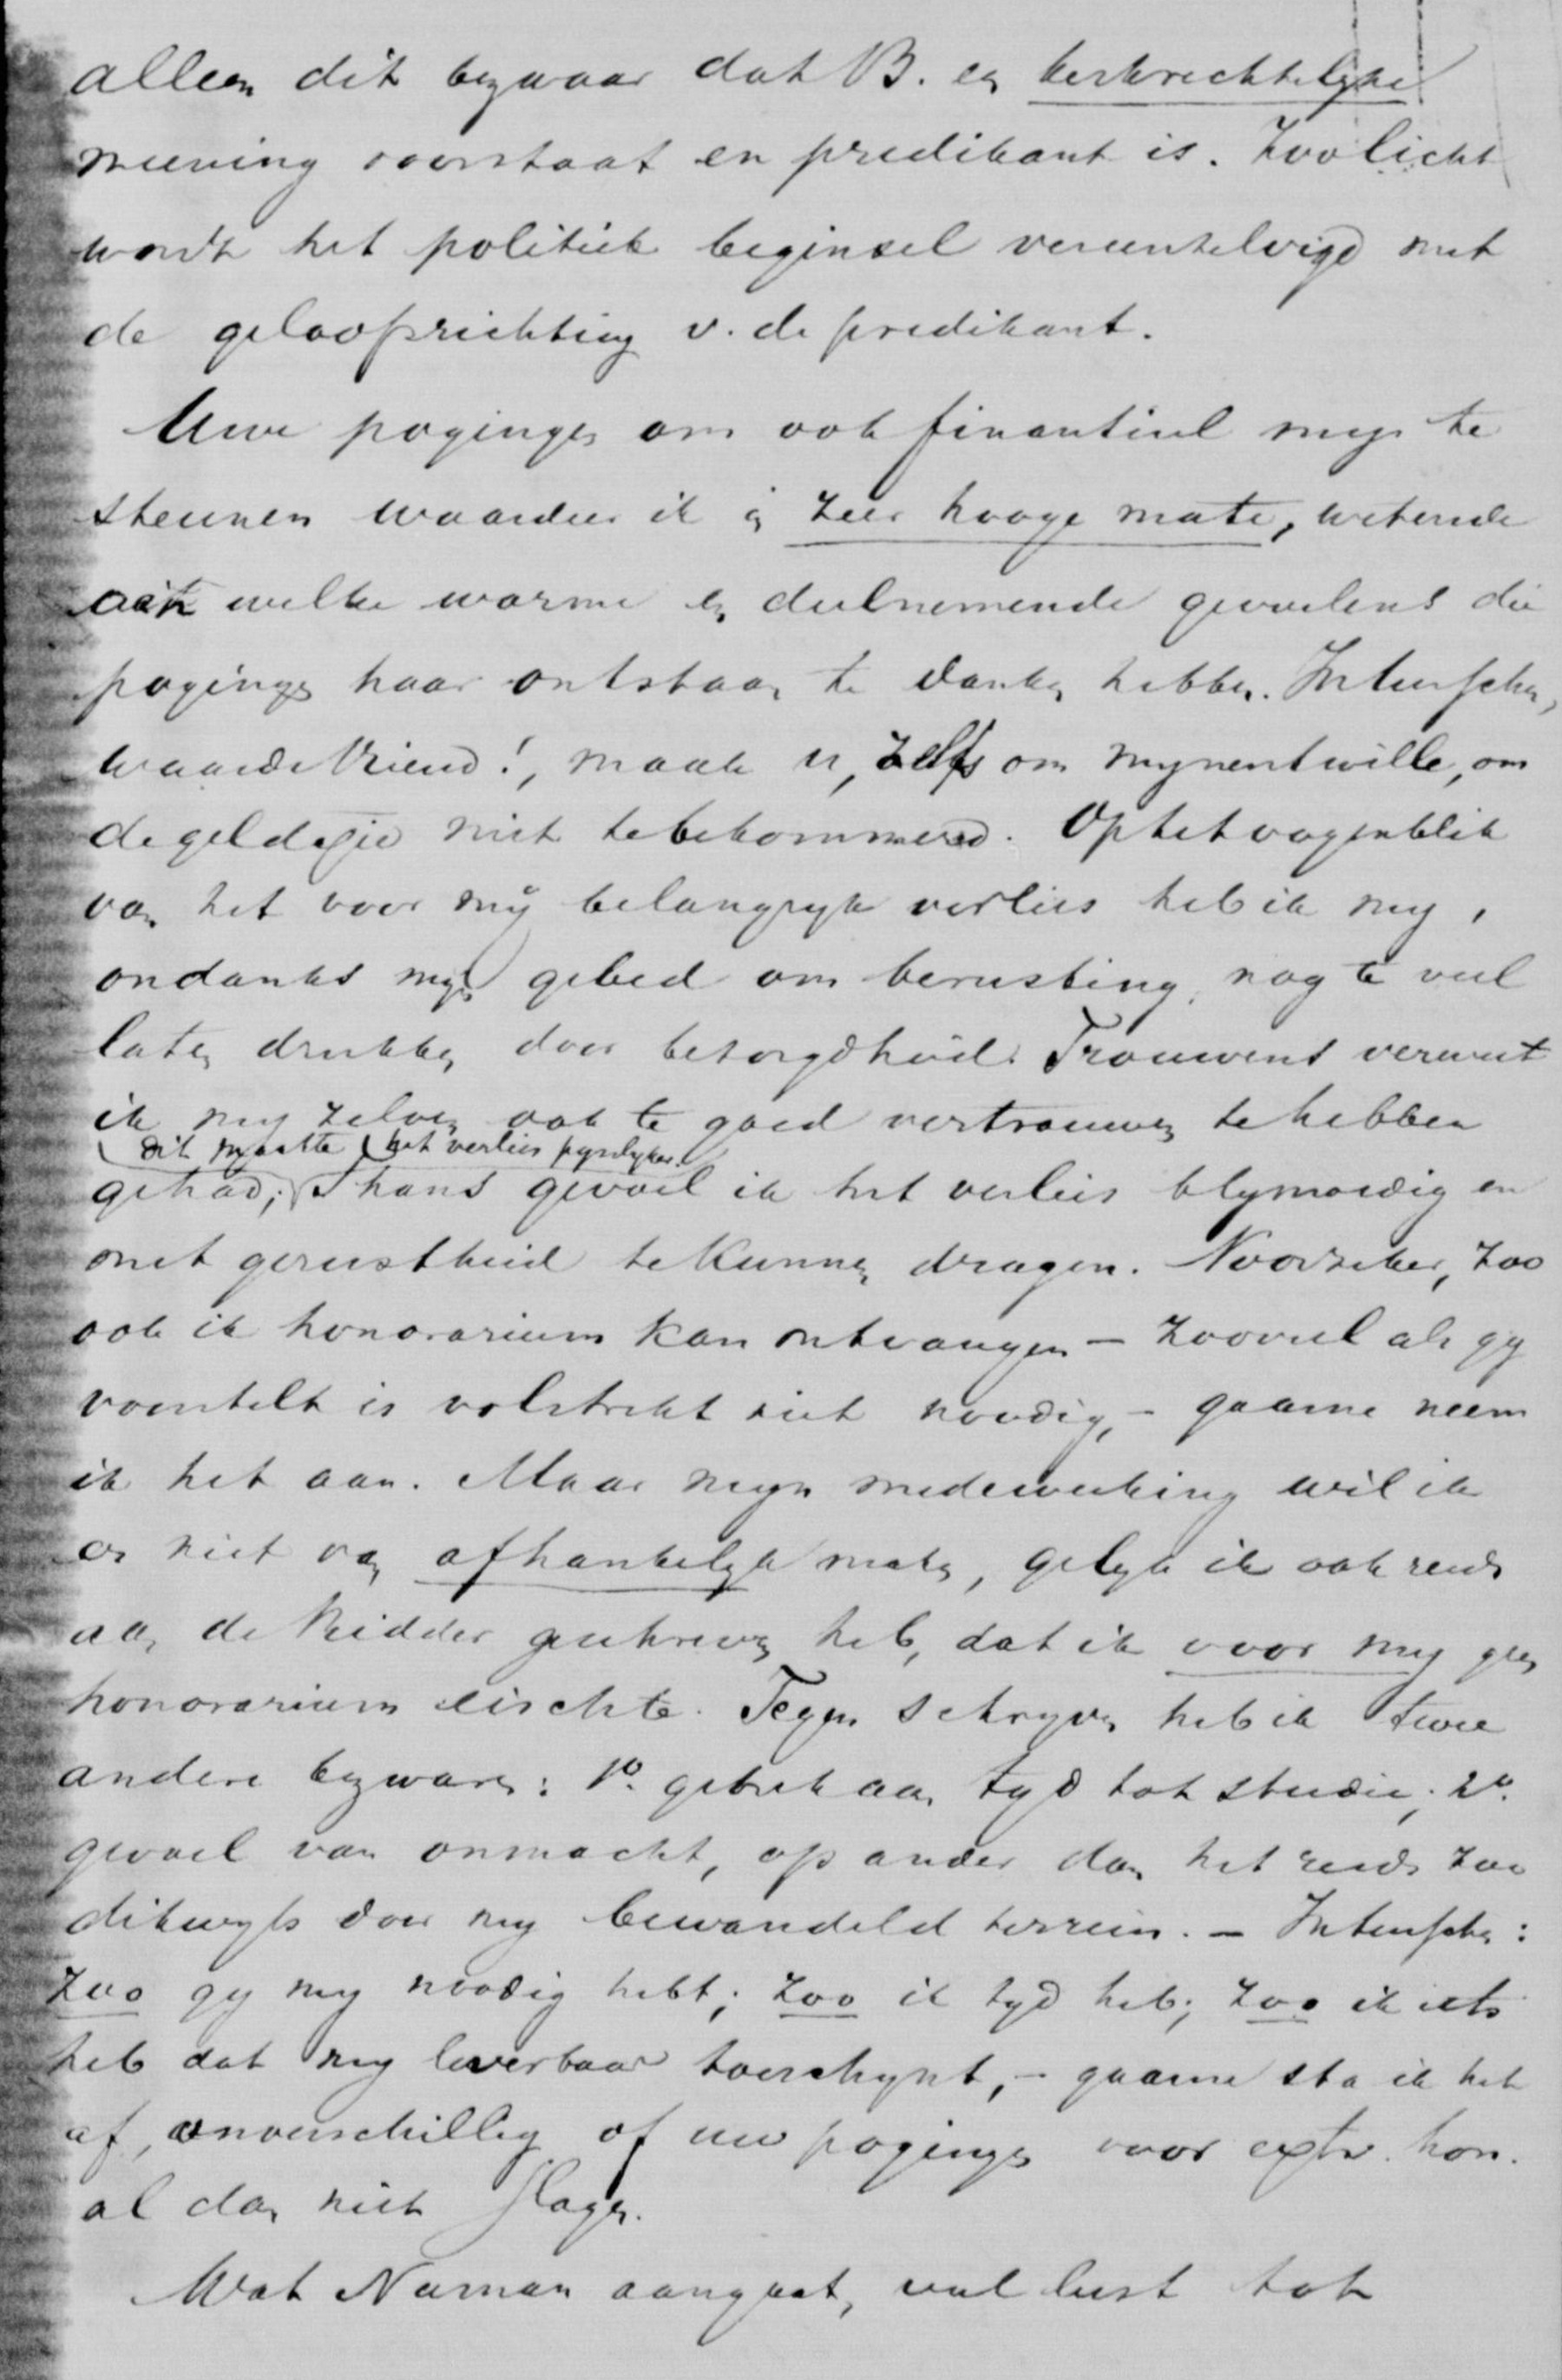 alleen dit bezwaar dat B. een kerkrechtelijke
meening voorstaat en predikant is. Zoo licht
wordt het politiek beginsel vereenzelvigd met
de geloofsrichting v. de predikant.
Uwe pogingen om ook finantieel mijn te
steunen waardeer ik in zeer hooge mate, wetende
aan welke warme en deelnemende gevoelens die
pogingen haar ontstaan te danken hebben. Intusschen,
waarde Vriend!, maak u, zelfs om mijnentwille, om
de geld niet te bekommeren. Op het oogenblik
van het voor mij belangrijk verlies heb ik mij,
ondanks mijn gebed om berusting, nog te veel
laten drukken door bezorgdheid. Trouwens verweet
ik mij zelven ook te goed vertrouwen te hebben
dit maakte het verlies pijnlijker.
gehad; Thans gevoel ik het verlies blijmoedig en
met gerustheid te kunnen dragen. Voorzeker, zoo
ook ik honorarium kan ontvangen – zooveel als gij
voorstelt is volstrekt niet noodig, – gaarne neem
ik het aan. Maar mijn medewerking wil ik
er niet van afhankelijk maken, gelijk ik ook reeds
aan de Ridder geschreven heb, dat ik voor mij geen
honorarium eischte. Tegen schrijven heb ik twee
andere bezwaren: 1o. gebrek aan tijd tot studie; 2o.
gevoel van onmacht, op ander dan het reeds zoo
dikwijls door mij bewandeld terrein. – Intusschen:
Zoo gij mij noodig hebt; zoo ik tijd heb; zoo ik iets
heb dat mij leverbaar toeschijnt, – gaarne sta ik het
af, onverschillig of uw pogingen voor extr. hon.
al dan niet slagen.
Wat Naman aangaat, veel lust tot